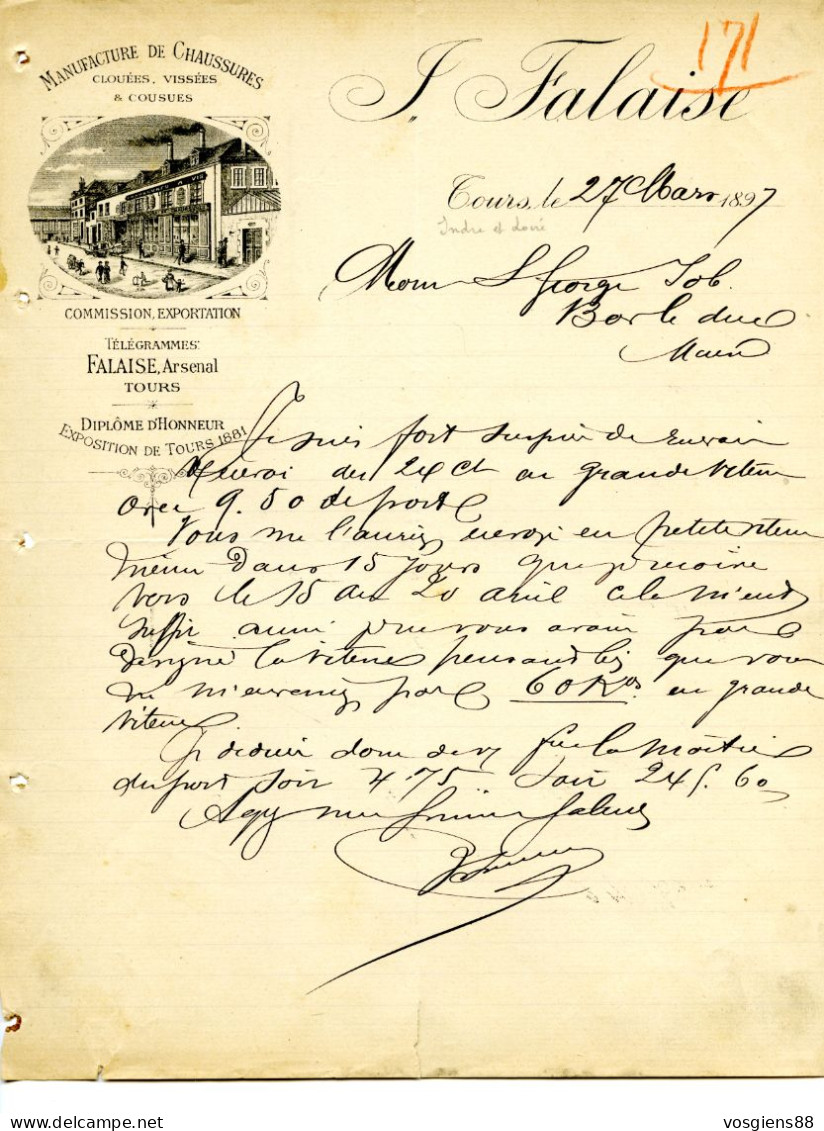 MANUFACTURE DE CHAUSSURES
CLOUÉES, VISSÉES
& COUSUES
COMMISSION, EXPORTATION
TÉLÉGRAMMES:
FALAISE, Arsenal
TOURS
DIPLÔME D'HONNEUR
EXPOSITION DE TOURS 1881
171
J. Falaise
Tours, le 27 Mars 1897
Indre et Loire
George Job
Bar le duc
Je suis fort surpris de
du 24 ct en grande vitesse
avec 9.50 de port
Vous me l'auriez envoyé en petite vitesse
même dans 15 jours
vers le 15 au 20 avril cela m'eut
suffit aussi je ne vous avais pas
désigné la vitesse pensant que vous
ne m' pas 60 Kos en grande
vitesse
Je donc de la moitié
du port soit 4.75 Soit 245.60
vosgiens88